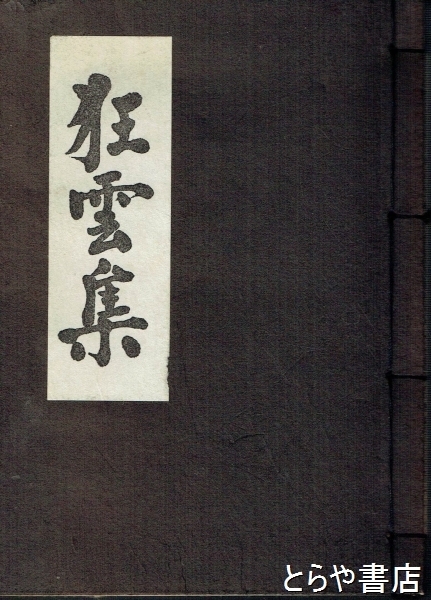 狂雲集
とらや書店